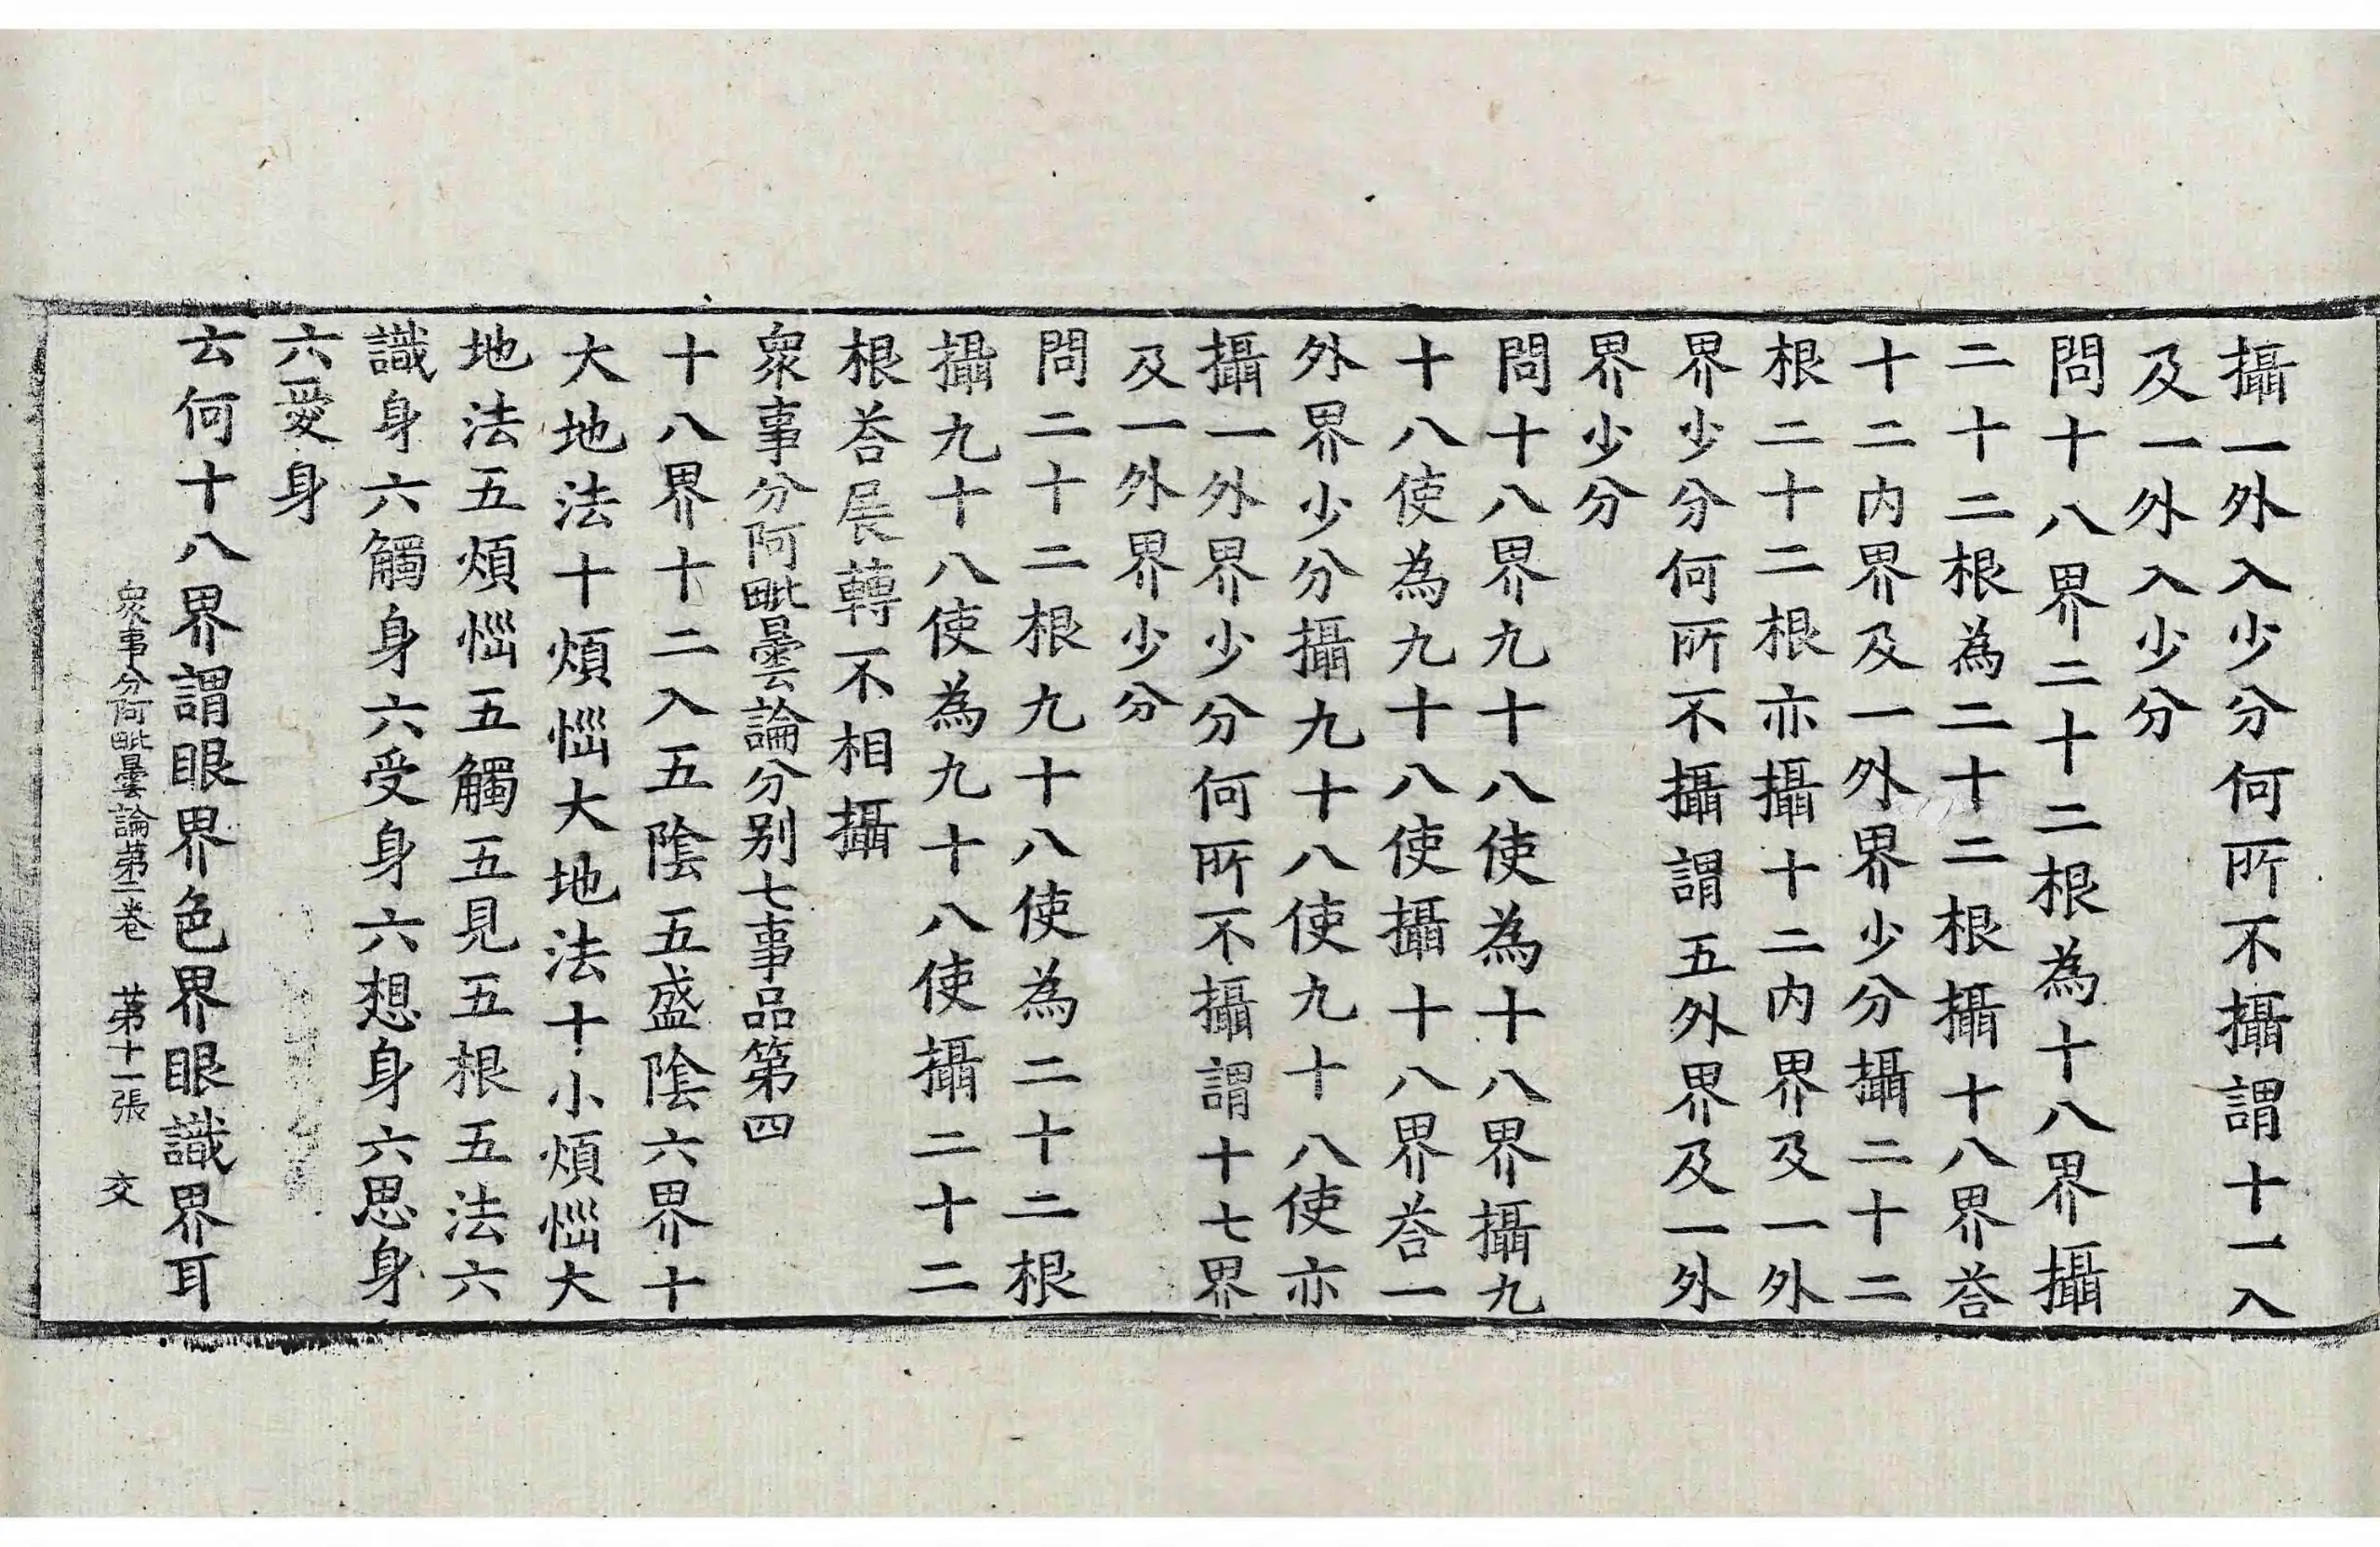 攝一外入少分何所不攝謂十一入
及一外入少分
問十八界二十二根為十八界攝
二十二根為二十二根攝十八界荅
十二内界及一外界少分攝二十二
根二十二根亦攝十二内界及一外
界少分何所不攝謂五外界及一外
界少分
問十八界九十八使為十八界攝九
十八使為九十八使攝十八界荅一
外界少分攝九十八使九十八使亦
攝一外界少分何所不攝謂十七界
及一外界少分
問二十二根九十八使為二十二根
攝九十八使為九十八使攝二十二
根荅展轉不相攝
衆事分阿毗曇論分别七事品第四
十八界十二入五陰五盛陰六界十
大地法十煩惱大地法十小煩惱大
地法五煩惱五觸五見五根五法六
識身六觸身六受身六想身六思身
六愛身
云何十八界謂眼界色界眼識界耳
衆事分阿毗曇論第二卷 第十一張 交